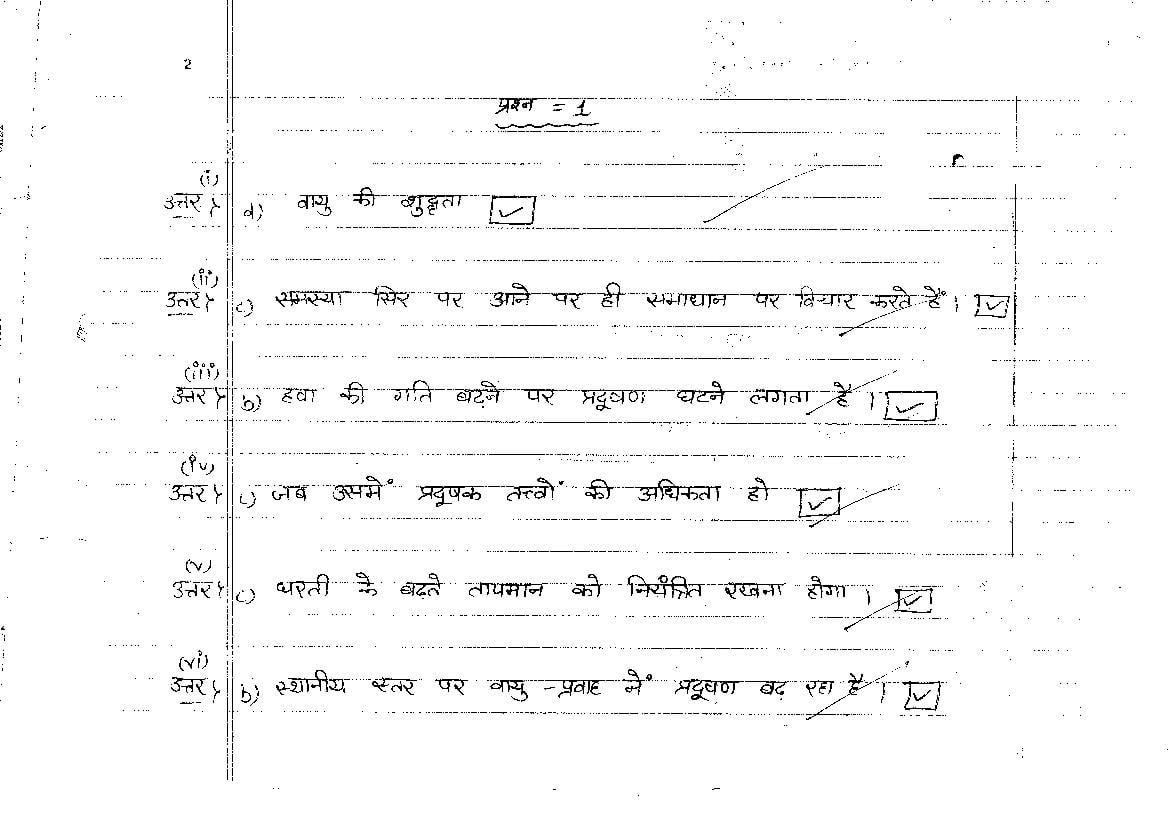 2
प्रश्न = 1
(i)
उत्तर > a) वायु की शुद्धता
(ii)
उत्तर > c) समस्या सिर पर आने पर ही समाधान पर विचार करते हैं।
(iii)
उत्तर > b) हवा की गति बढ़ने पर प्रदूषण घटने लगता है।
(iv)
उत्तर > c) जब उसमें प्रदूषक तत्त्वों की अधिकता हो
(v)
उत्तर > c) धरती के बढ़ते तापमान को नियंत्रित रखना होगा।
(vi)
उत्तर > b) स्थानीय स्तर पर वायु-प्रवाह में प्रदूषण बढ़ रहा है।